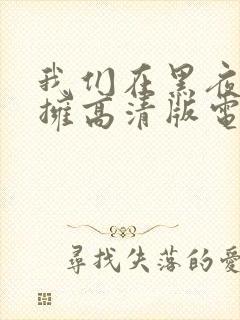 我们在黑夜
擁高清版電
尋找失落的愛